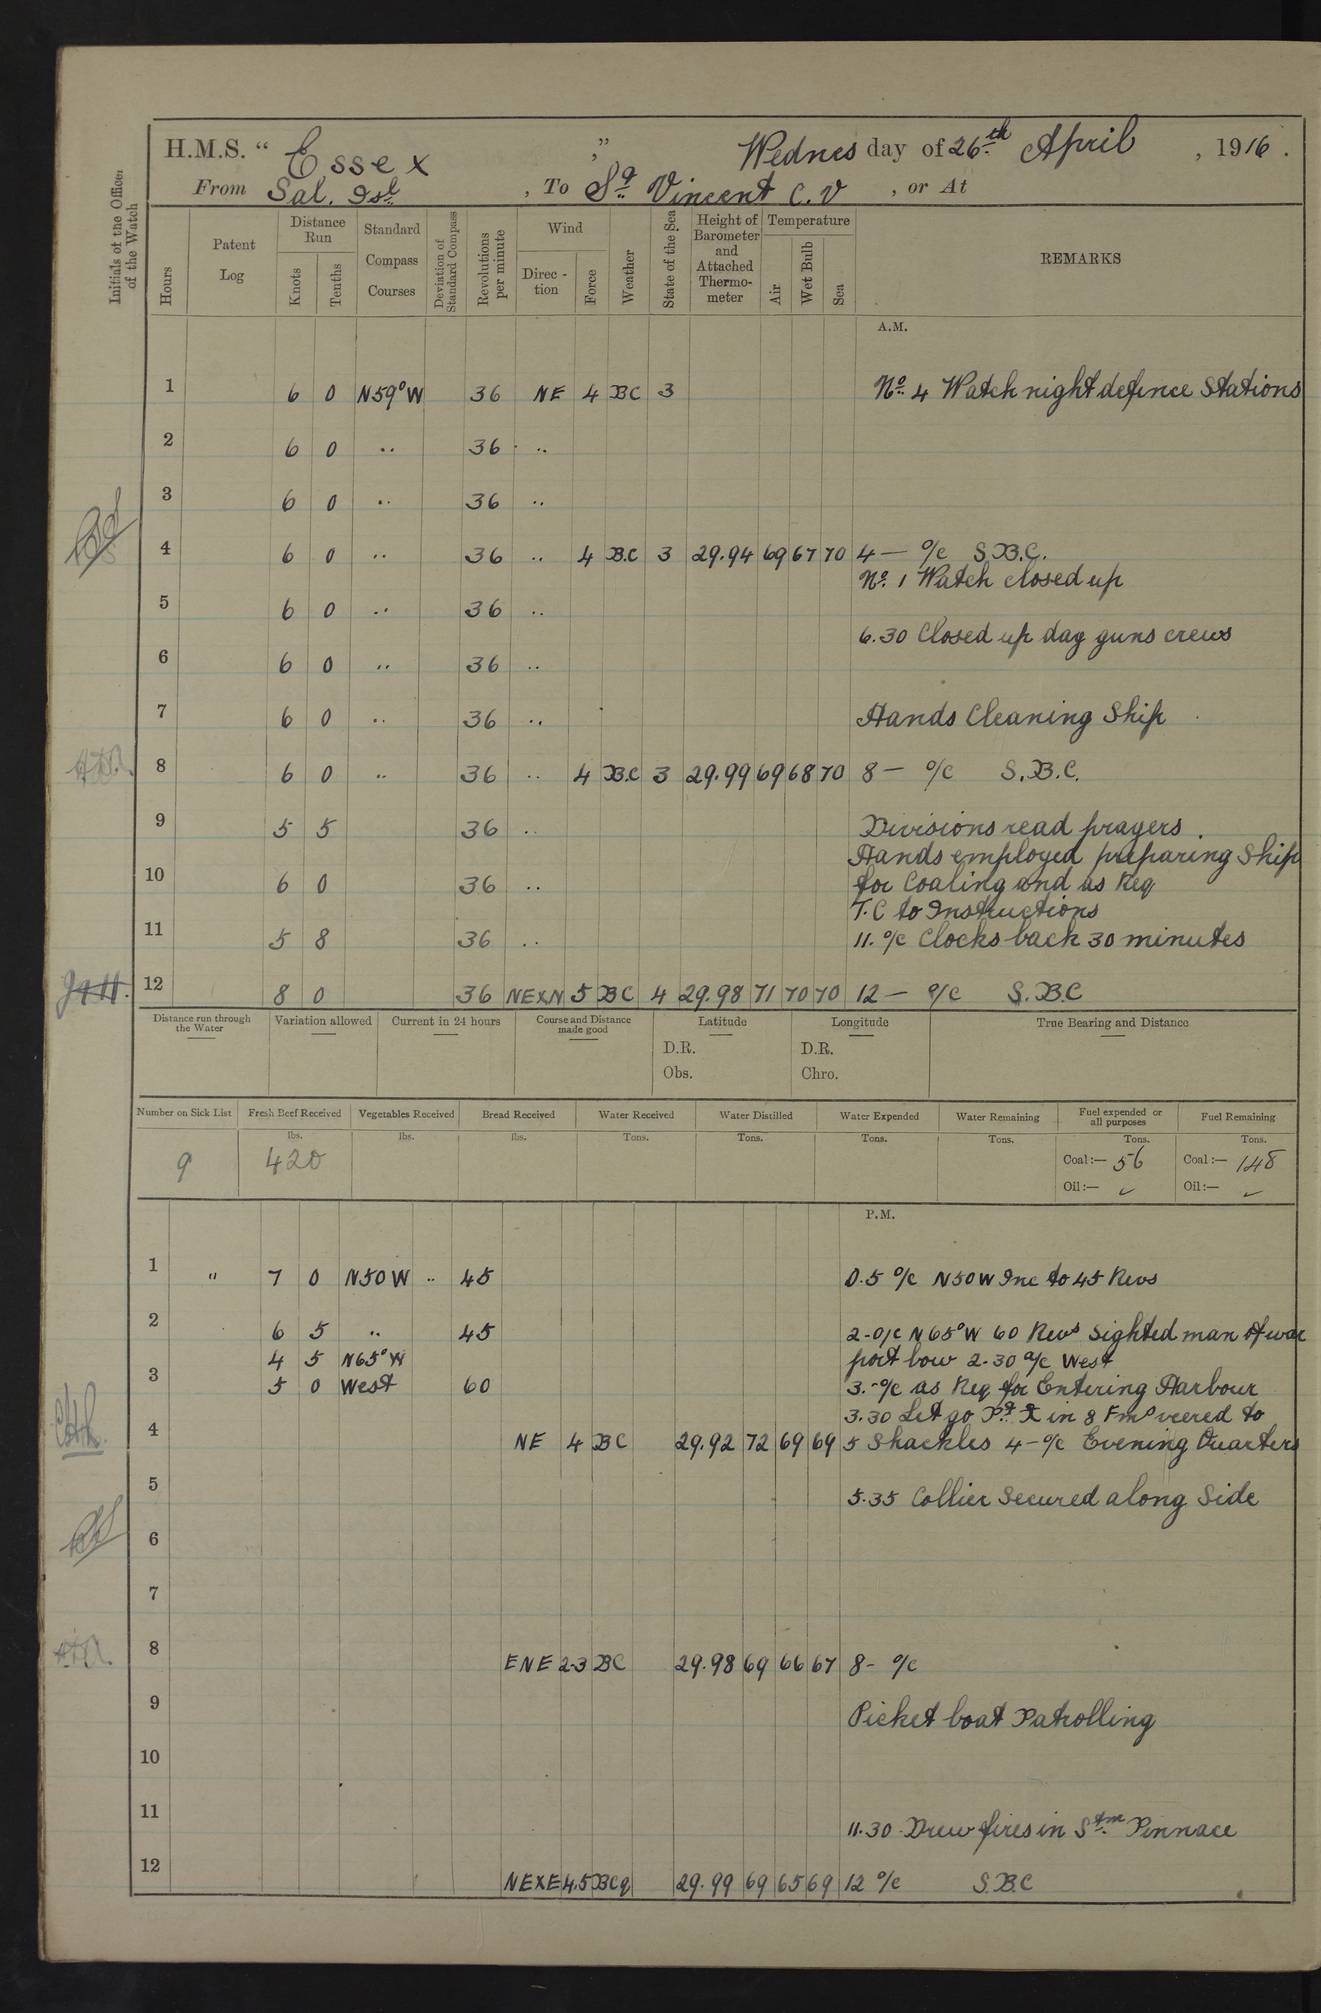 H.M.S. “ Essex ,” Wednes day of 26th April , 1916 .
From Sal. Isl , To St Vincent C. V , or At
Initials of the Officer of the Watch
Hours
Patent Log
Distance Run
Knots
Tenths
Standard Compass Courses
Deviation of Standard Compass
Revolutions per minute
Wind
Direc - tion
Force
Weather
State of the Sea
Height of Barometer and Attached Thermo- meter
Temperature
Air
Wet Bulb
Sea
REMARKS
A.M.
1 6 0 N59°W 36 NE 4 BC 3 No. 4 Watch night defence Stations
2 6 0 .. 36 ..
3 6 0 .. 36 ..
4 6 0 .. 36 .. 4 B.C 3 29.94 69 67 70 4 — o/c S.B.C.
No. 1 Watch closed up
5 6 0 .. 36 ..
6.30 Closed up day guns crews
6 6 0 .. 36 ..
7 6 0 .. 36 .. Hands Cleaning Ship
8 6 0 .. 36 .. 4 B.C 3 29.99 69 68 70 8 — o/c S.B.C.
9 5 5 36 .. Divisions read prayers .
Hands employed preparing Ship
10 6 0 36 .. for Coaling and as Req
T.C to Instructions
11 5 8 36 .. 11. o/c Clocks back 30 minutes
12 8 0 36 NEXN 5 BC 4 29.98 71 70 70 12 — o/c S.B.C
Distance run through the Water
Variation allowed
Current in 24 hours
Course and Distance made good
Latitude
Longitude
True Bearing and Distance
D.R. D.R.
Obs. Chro.
Number on Sick List
Fresh Beef Received
Vegetables Received
Bread Received
Water Received
Water Distilled
Water Expended
Water Remaining
Fuel expended or all purposes
Fuel Remaining
lbs. lbs. lbs. Tons. Tons. Tons. Tons. Tons. Tons.
9 420 Coal:— 56 Coal:— 148
Oil:— ✓ Oil:— ✓
P.M.
1 " 7 0 N50W .. 45 0.5 o/c N50W Inc to 45 Revs
2 6 5 .. 45 2-0/c N65°W 60 Revs Sighted man of war
4 5 N65°W port bow 2-30 a/c West
3 5 0 West 60 3.-o/c as Req for Entering Harbour
3.30 Let go Pt ⚓ in 8 Fms veered to
4 NE 4 BC 29.92 72 69 69 5 Shackles 4-o/c Evening Quarters
5 5.35 Collier Secured along Side
6
7
8 ENE 2-3 BC 29.98 69 66 67 8- o/c
9 Picket boat Patrolling
10
11 11.30 Drew fires in Stm Pinnace
12 NEXE 4.5 BCq 29.99 69 65 69 12 o/c S.B.C